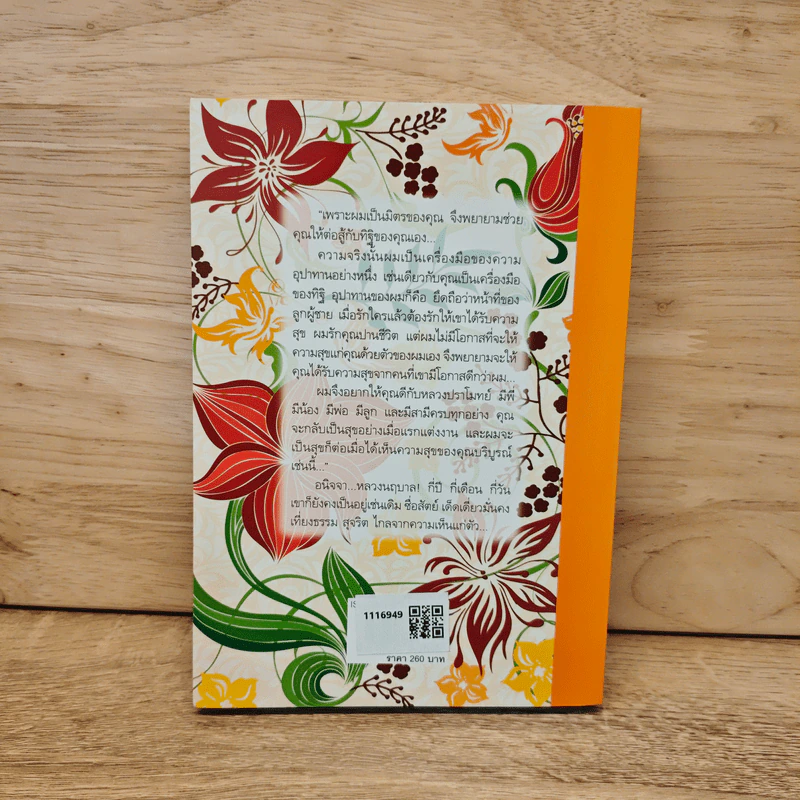 "เพราะผมเป็นมิตรของคุณ จึงพยายามช่วย
คุณให้ต่อสู้กับทิฐิของคุณเอง...
ความจริงนั้นผมเป็นเครื่องมือของความ
อุปาทานอย่างหนึ่ง เช่นเดียวกับคุณเป็นเครื่องมือ
ของทิฐิ อุปาทานของผมก็คือ ยึดถือว่าหน้าที่ของ
ลูกผู้ชาย เมื่อรักใครแล้วต้องรักให้เขาได้รับความ
สุข ผมรักคุณปานชีวิต แต่ผมไม่มีโอกาสที่จะให้
ความสุขแก่คุณด้วยตัวของผมเอง จึงพยายามจะให้
คุณได้รับความสุขจากคนที่เขามีโอกาสดีกว่าผม...
ผมจึงอยากให้คุณดีกับหลวงปราโมทย์ มีพี่
มีน้อง มีพ่อ มีลูก และมีสามีครบทุกอย่าง คุณ
จะกลับเป็นสุขอย่างเมื่อแรกแต่งงาน และผมจะ
เป็นสุขก็ต่อเมื่อได้เห็นความสุขของคุณบริบูรณ์
เช่นนี้..."
อนิจจา...หลวงนฤบาล! กี่ปี กี่เดือน กี่วัน
เขาก็ยังคงเป็นอยู่เช่นเดิม ซื่อสัตย์ เด็ดเดี่ยวมั่นคง
เที่ยงธรรม สุจริต ไกลจากความเห็นแก่ตัว...
1116949
ราคา 260 บาท